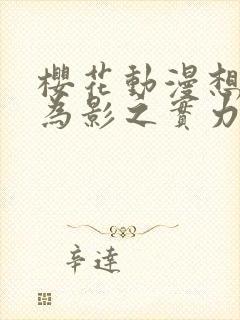 櫻花動漫想
為影之實力
辛達